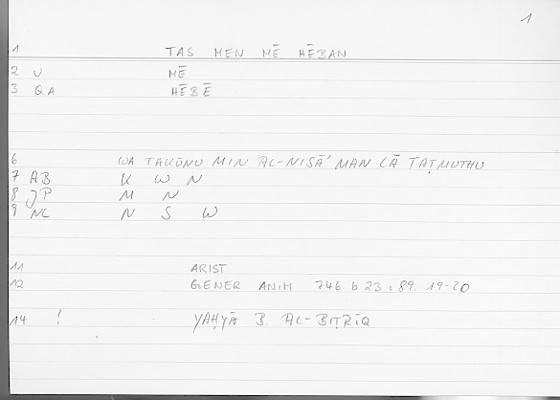 1
1 TAS MEN MĒ HĒBAN
2 U MĒ
3 QA HĒBĒ
6 WA TAKŪNU MIN AL-NISĀ' MAN LĀ TAṬMUTHU
7 AB K W N
8 JP M N
9 NL N S W
11 ARIST
12 GENER ANIM 746 b 23 : 89. 19-20
14 ! YAḤYĀ B. AL-BIṬRĪQ